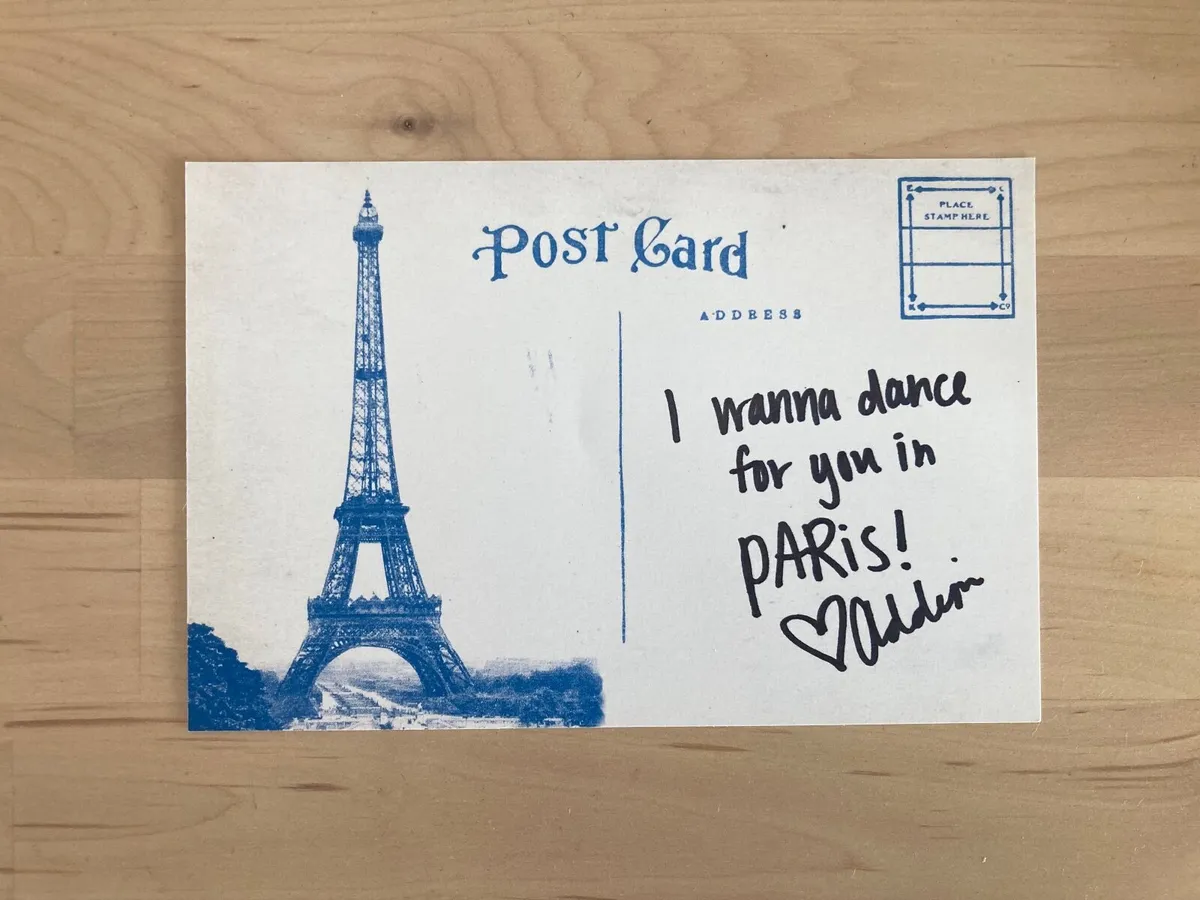 Post Card
PLACE
STAMP HERE
ADDRESS
I wanna dance
for you in
PARiS!
♡ addison